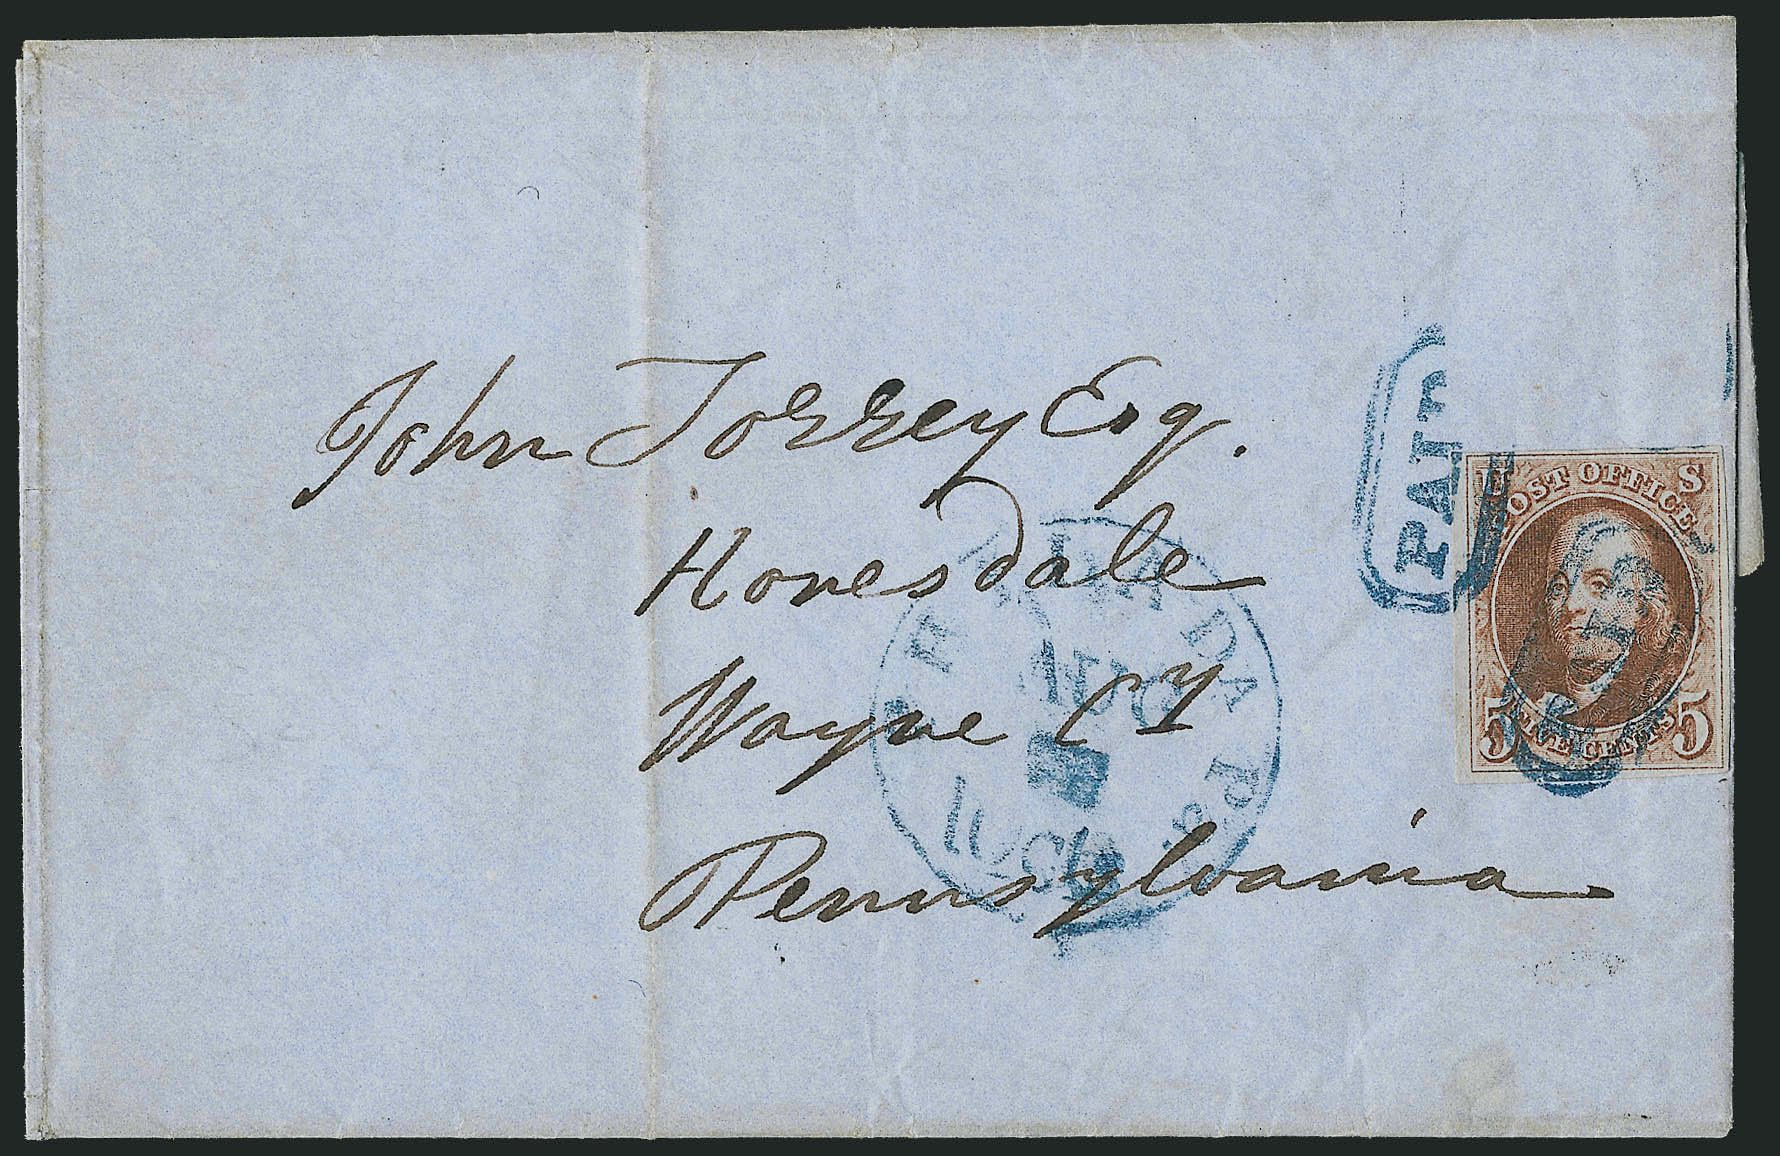 John Torrey Esq.
Honesdale
Wayne Cy
Pennsylvania
PAID
U POST OFFICE S
5 FIVE CENTS 5
PHILADA Ps.